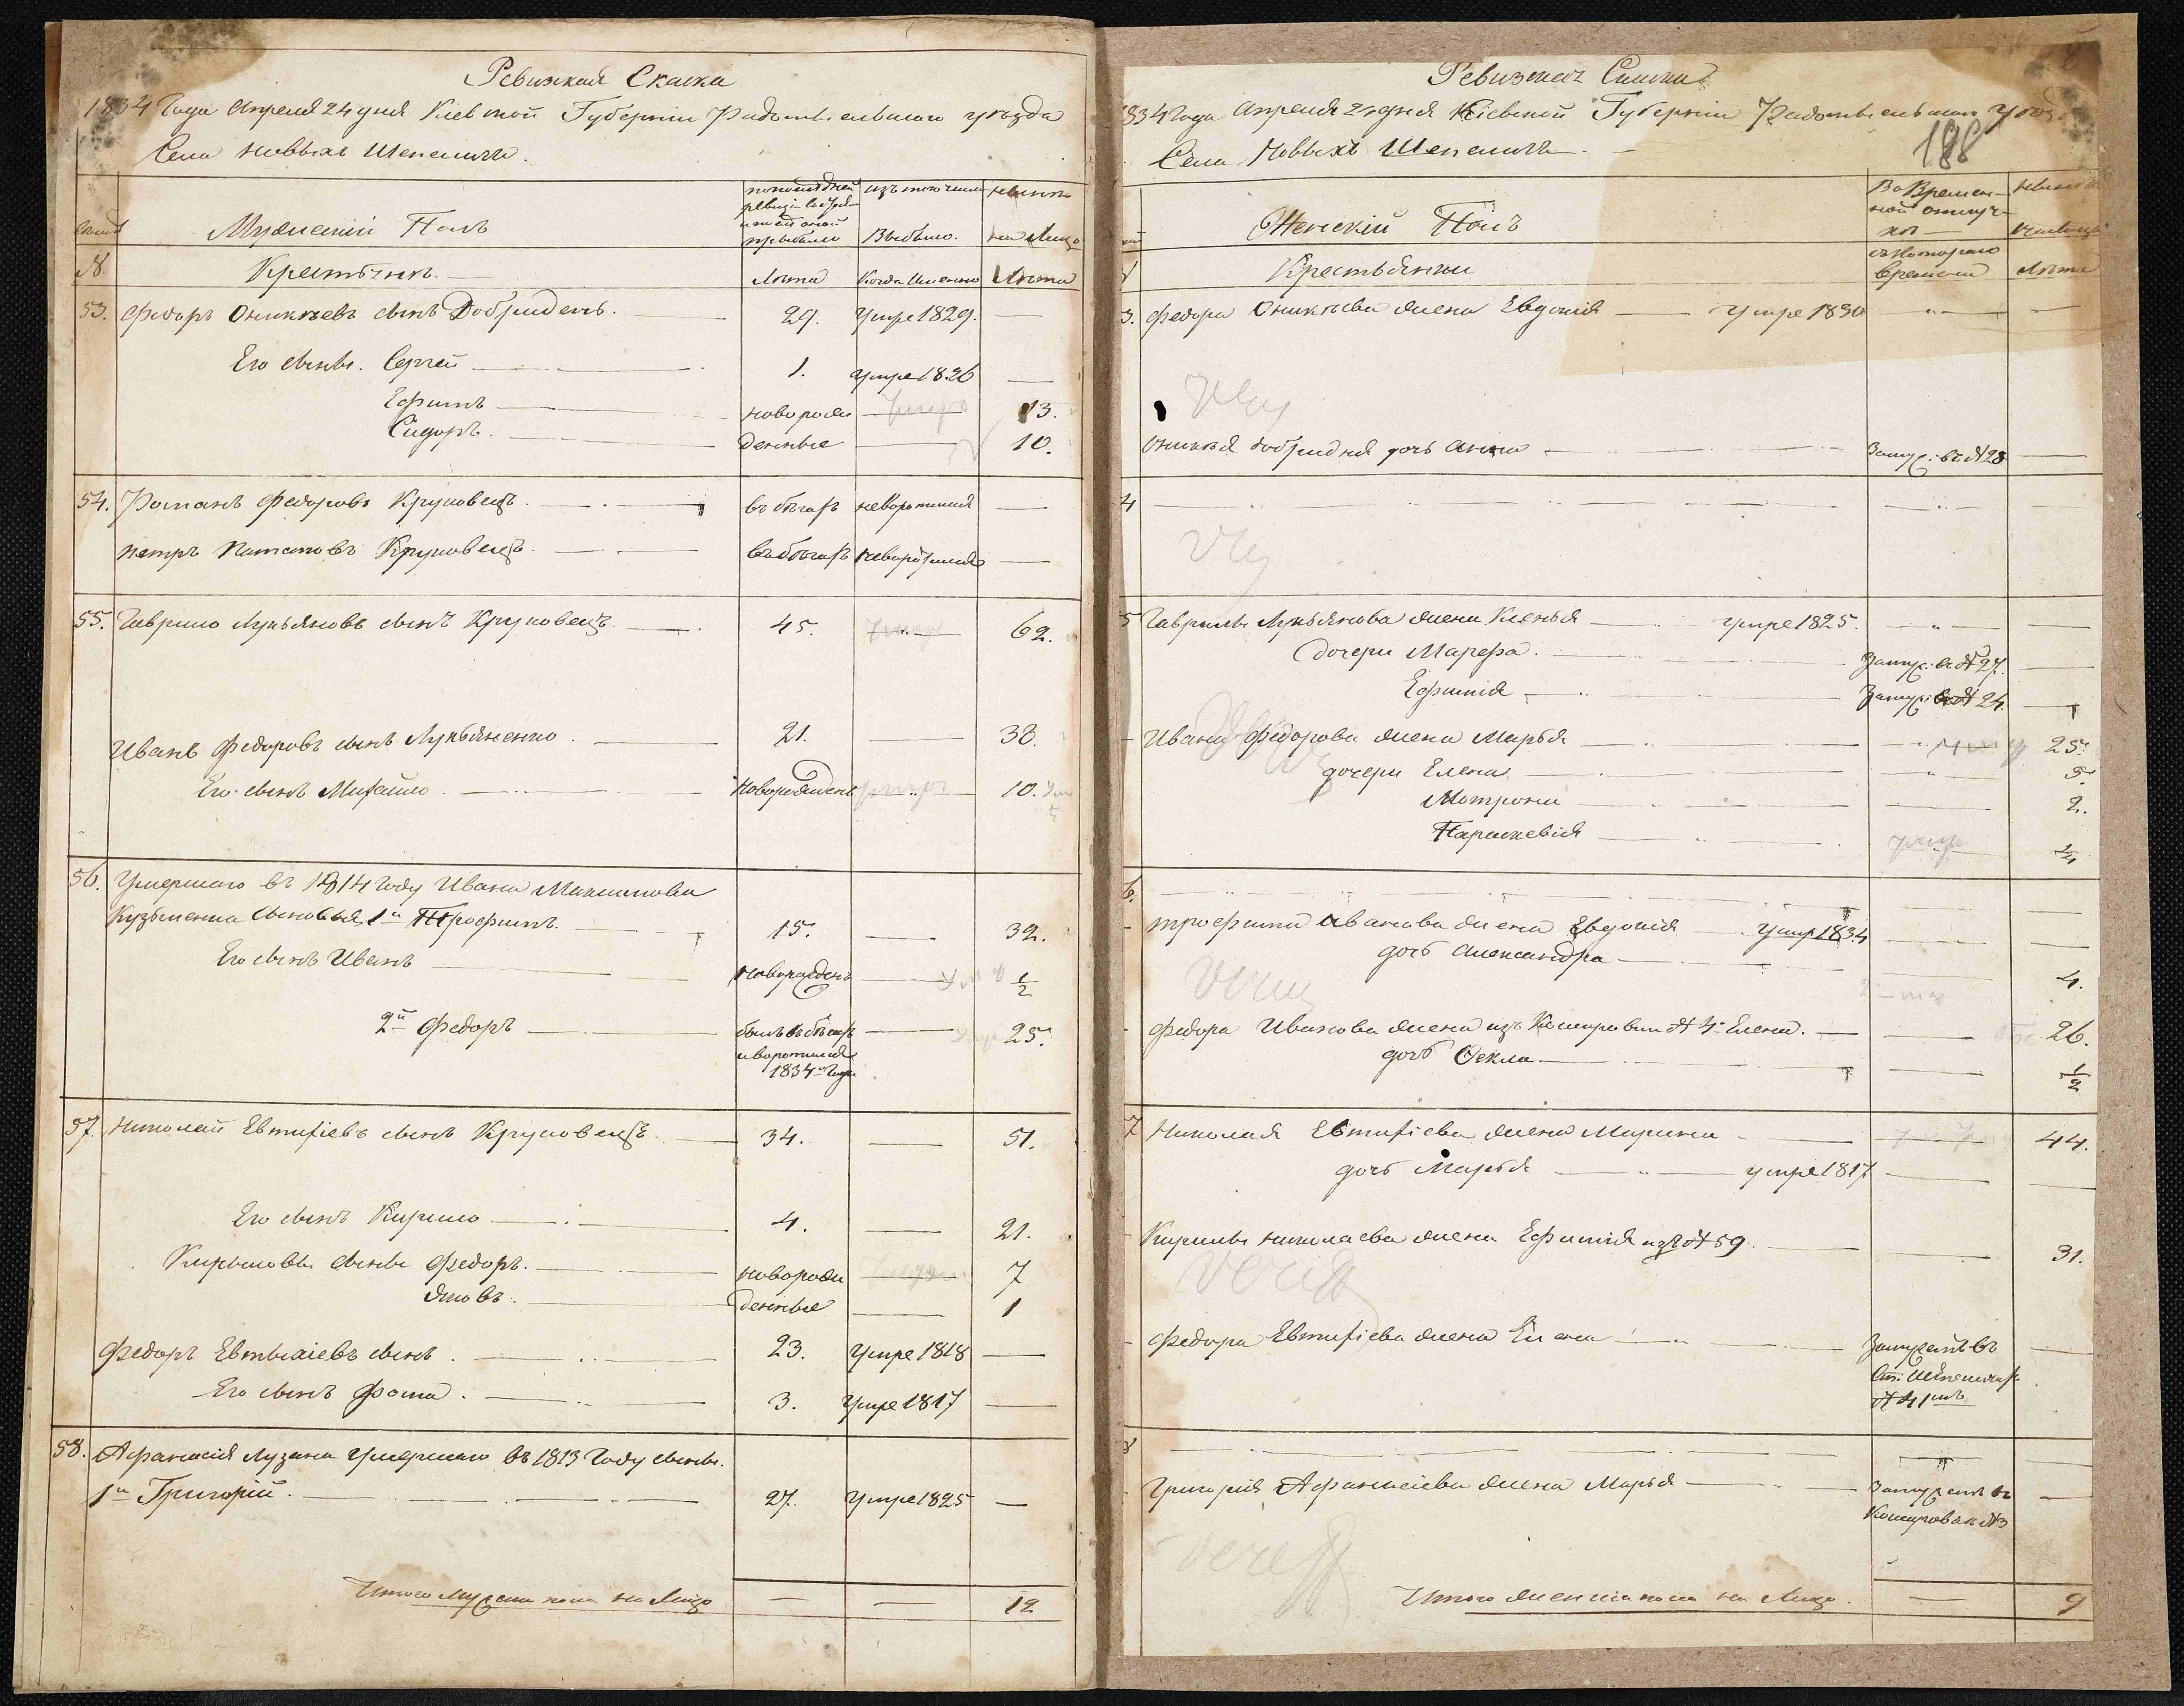 Ревизская Скаска
1834 Года Апреля 24 дня Кіевской Губерніи Радомысльского уезда
Села Новыхъ Шепеличъ.
Мужескій Полъ
по последней ревизіи состояло и после оной прибыло
изъ того числа Выбыло.
ныне на Лицо
№.
Крестьяне.
Лета
Когда Именно
Лета
53. Федоръ Оникеевъ сынъ Добридень. 29. Умре 1829.
Его сыны. Сергей 1. умре 1826
Ефимъ новорож 13.
Сидоръ. денные 10.
54. Романъ Федоровъ Круковецъ. въ бегахъ неворотился
Петръ Потаповъ Круковецъ. въ бегахъ неворотился
55. Гаврило Лукьяновъ сынъ Круковецъ. 45. 62.
Иванъ Федоровъ сынъ Лукьяненко. 21. 38.
Его сынъ Михайло. Новорожденъ 10.
56. Умершаго въ 1814 году Ивана Максимова
Кузьменка сыновья, 1й Трофимъ. 15. 32.
Его сынъ Иванъ новорожденъ 1/2
2й Федоръ былъ въ бегахъ 25.
и воротился
1834 года
57. Николай Евтихіевъ сынъ Круковецъ 34. 51.
Его сынъ Кирило 4. 21.
Кириловы сыны Федоръ. новорож 7
Яковъ. денные 1
Федоръ Евтыхіевъ сынъ. 23. Умре 1818
Его сынъ Фома. 3. Умре 1817
58. Афанасія Лузана умершаго въ 1813 Году сыны.
1й Григорій. 27. Умре 1825
Итого Мужеска пола на Лицо 12
Ревизская Скаска
1834 Года Апреля 24 дня Кіевской Губерніи Радомысльского уезда
188
Села Новыхъ Шепеличъ
Женскій Полъ
Во Временной отлучке
Крестьянки
съ Котораго Времени
Лета
3. Федора Оникеева жена Евдокія умре 1830
Оникея Добридня дочь Анна Замуж. въ № 28
4
5 Гаврилы Лукьянова жена Ксенья умре 1825.
дочери Марефа. Замуж. въ № 27.
Ефимія Замуж. въ № 24.
Ивана Федорова жена Марья 25.
дочери Елена 5.
Мотрона 2.
Параскевія 1/4
6.
Трофима Иванова жена Евдокія умре 1834
дочь Александра 4.
Федора Иванова жена изъ Кошаровки № 4. Елена. 26.
дочь Фекла 1/2
7 Николая Евтихіева жена Марина 44.
дочь Марья умре 1817
Кирилы Николаева жена Ефимія изъ № 59 31.
Федора Евтихіева жена Елена Замужемъ въ
Ст. Шепеличахъ
№ 41мъ
8
Григорія Афанасіева жена Марья Замужемъ въ
Кошаровке № 3
Итого женска пола на Лицо. 9